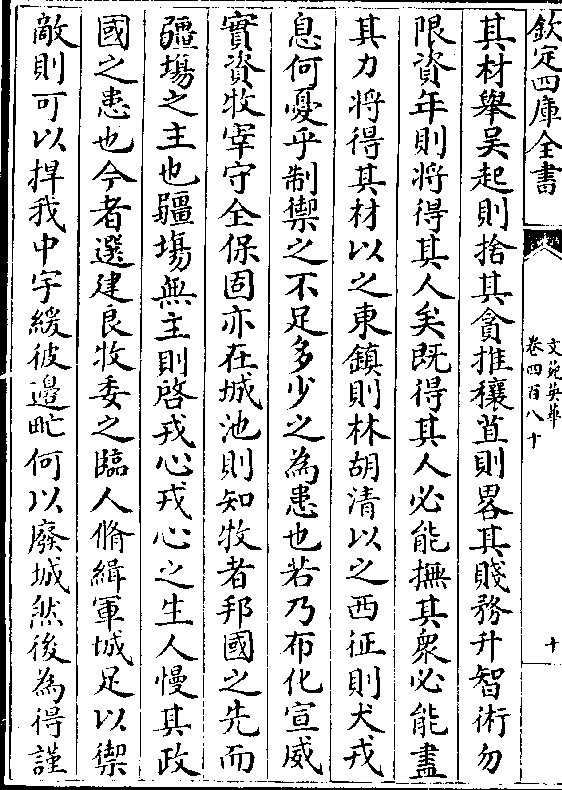 欽定四庫全書
文苑英華
卷四百八十
十
其材舉吴起則捨其貪推穰苴則畧其賤務升智術勿
限資年則將得其人矣既得其人必能撫其衆必能盡
其力將得其材以之東鎮則林胡清以之西征則犬戎
息何憂乎制禦之不足多少之為患也若乃布化宣威
實資牧宰守全保固亦在城池則知牧者邦國之先而
疆埸之主也疆埸無主則啓戎心戎心之生人慢其政
國之患也今者選建良牧委之臨人脩緝軍城足以禦
敵則可以捍我中宇緩彼邉甿何以廢城然後為得謹